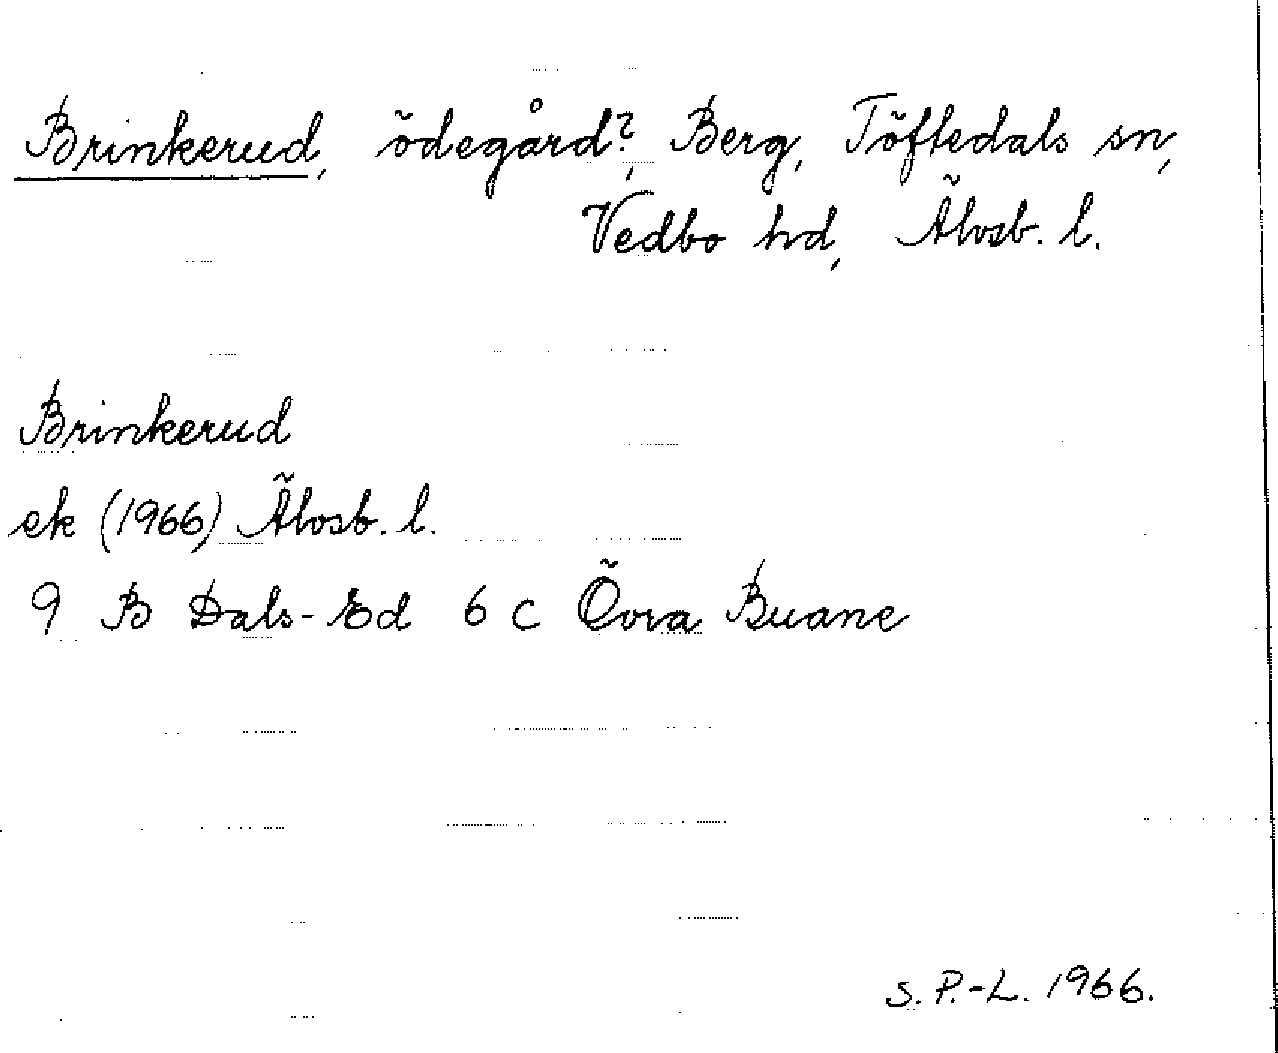 Brinkerud, ödegård?, Berg, Töftedals sn,
Vedbo hd, Älvsb. l.
Brinkerud
ek (1966) Älvsb. l.
9 B Dals-Ed 6 c Övra Buane
S. P.-L. 1966.